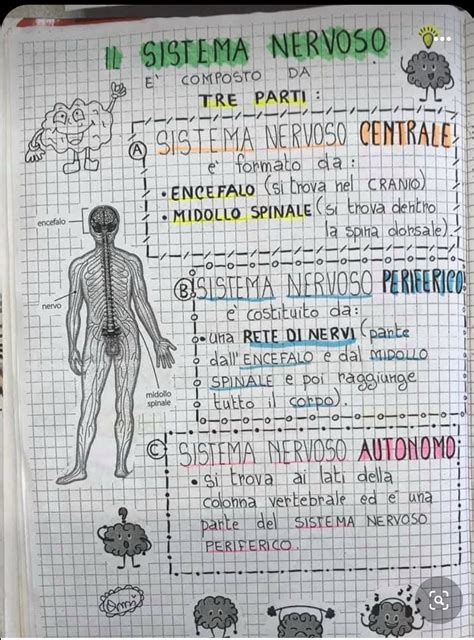 IL SISTEMA NERVOSO
E' COMPOSTO DA
TRE PARTI:
A SISTEMA NERVOSO CENTRALE
e' formato da:
• ENCEFALO (si trova nel CRANIO)
• MIDOLLO SPINALE (si trova dentro
la spina dorsale).
encefalo
nervo
midollo
spinale
B SISTEMA NERVOSO PERIFERICO
è costituito da:
• una RETE DI NERVI (parte
dall'ENCEFALO e dal MIDOLLO
SPINALE e poi raggiunge
tutto il corpo).
C SISTEMA NERVOSO AUTONOMO
• si trova ai lati della
colonna vertebrale ed è una
parte del SISTEMA NERVOSO
PERIFERICO.